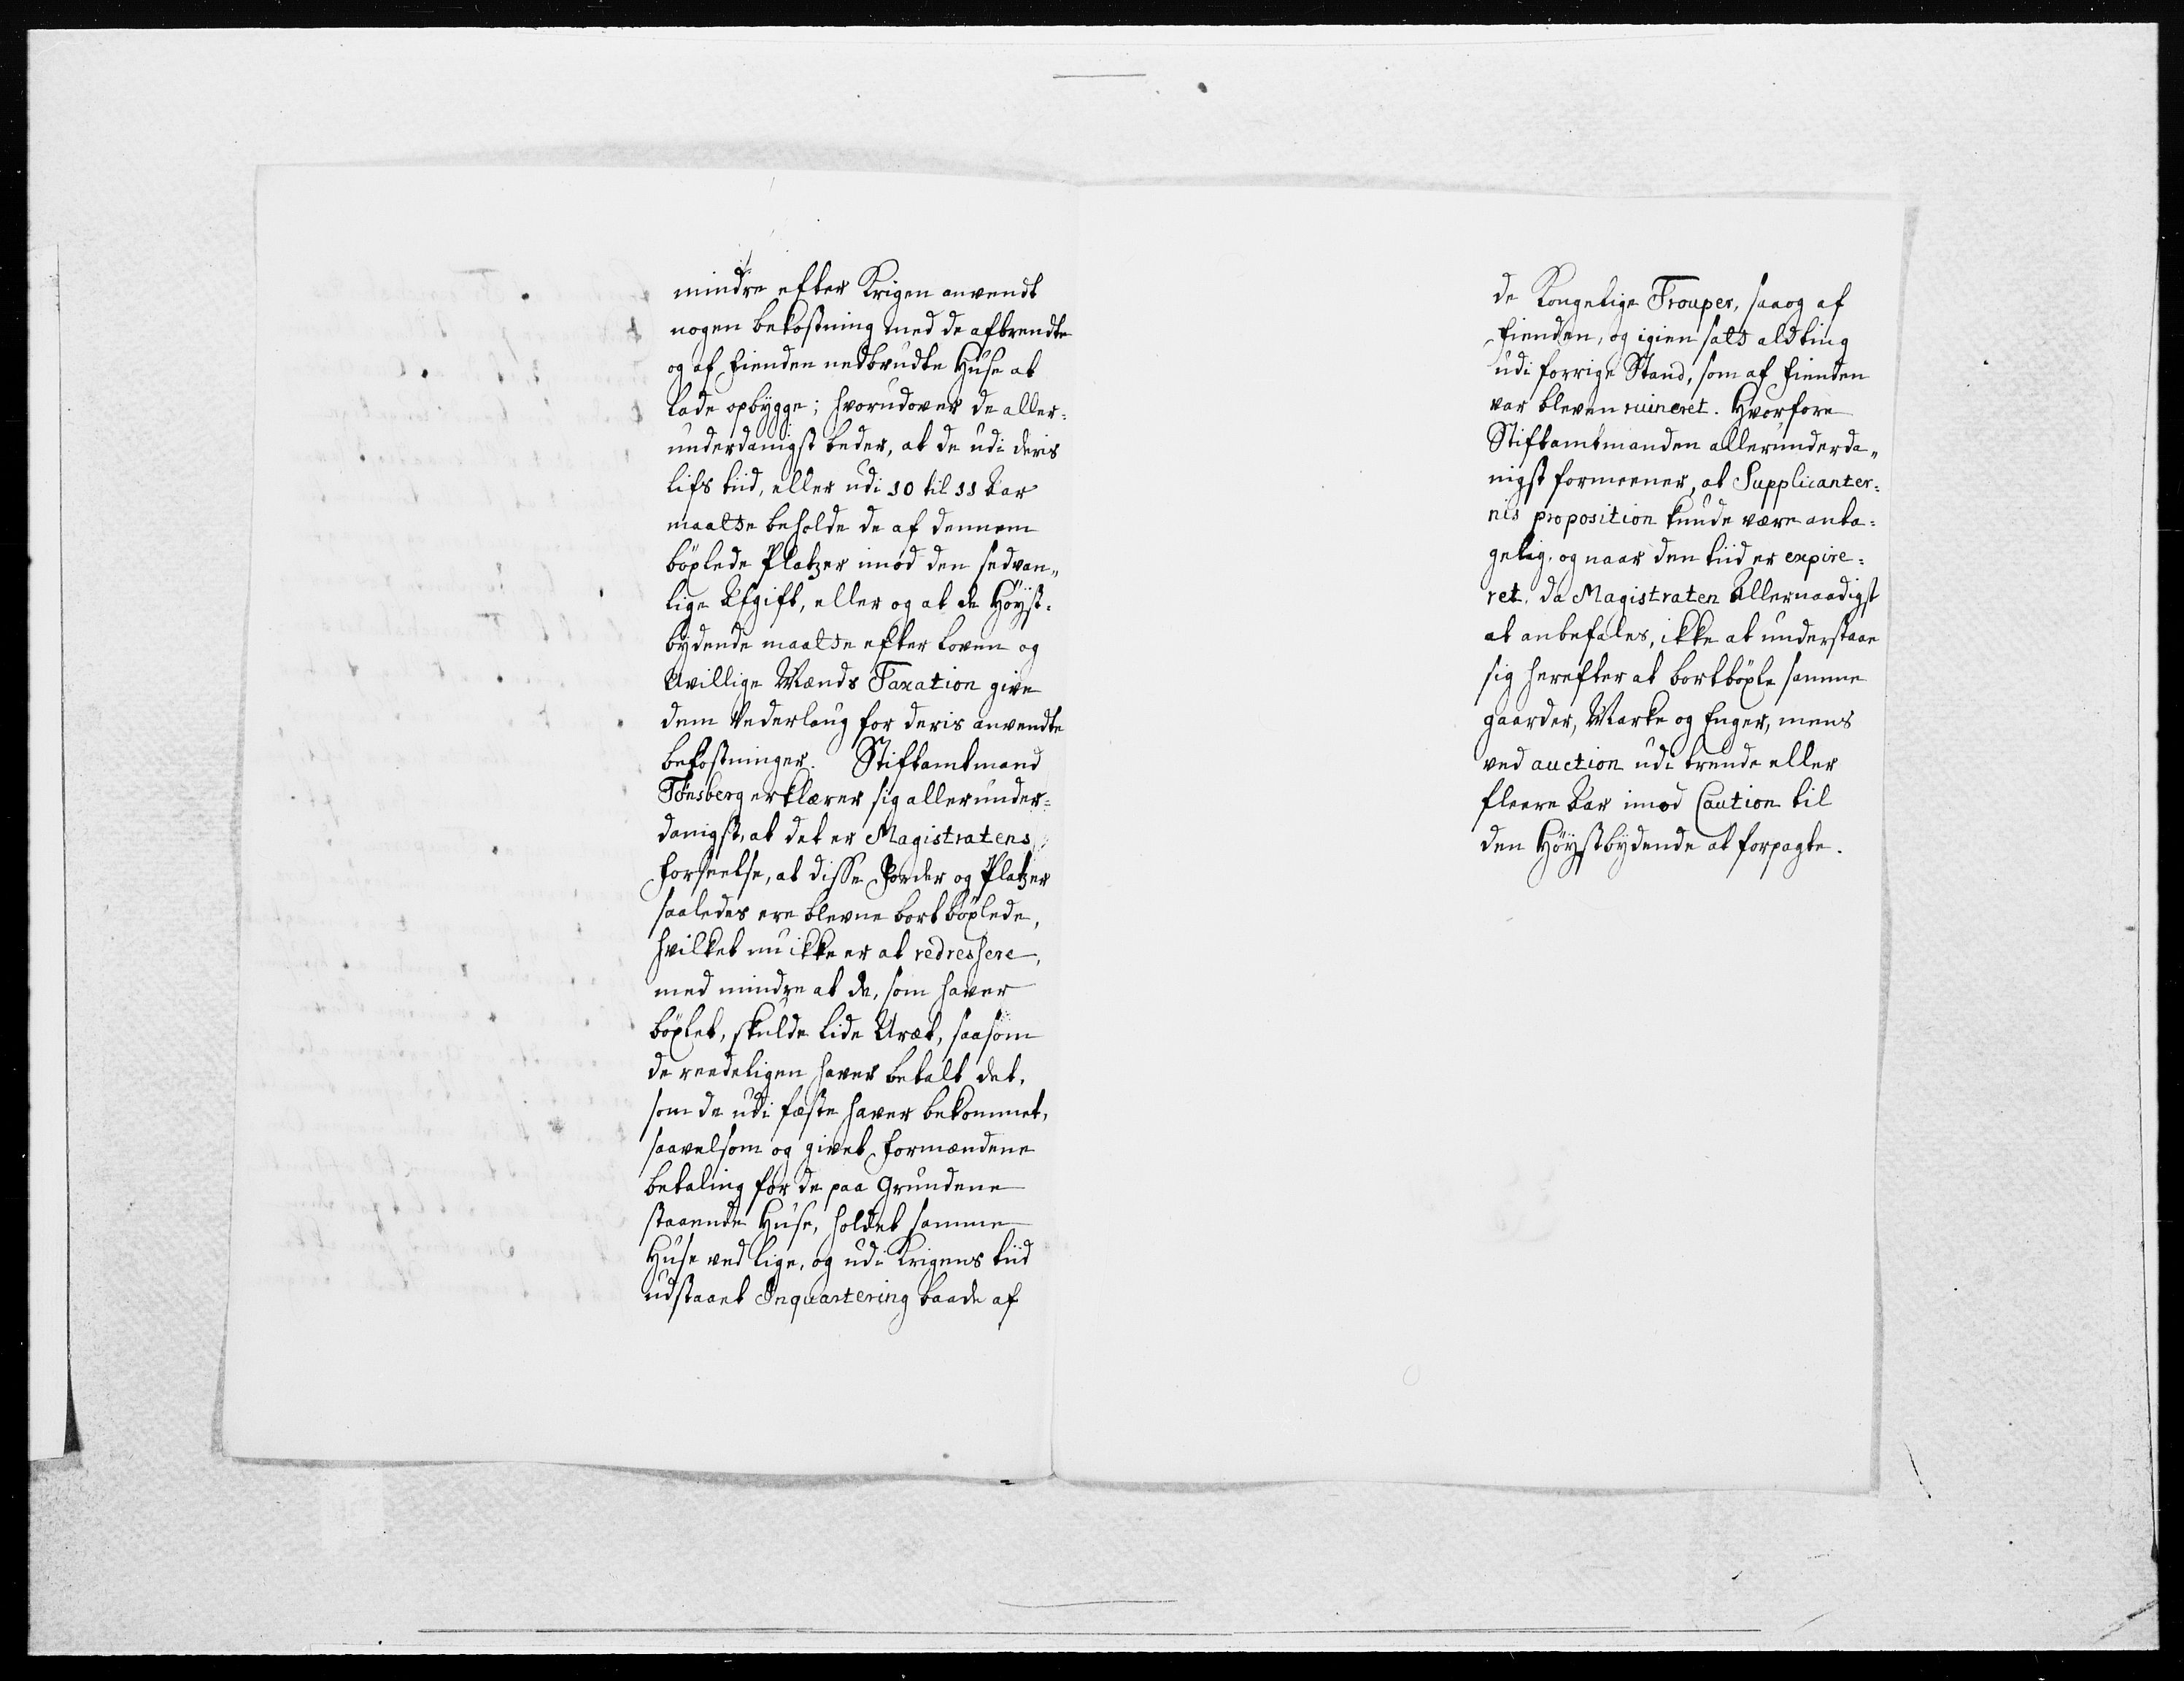 mindre efter Krigen anvendt
nogen bekostning med de afbrendte
og af Fienden nedbrudte Huse at
lade opbygge; hvorudover de aller=
underdanigst beder, at de udi deris
lifs tiid, eller udi 10 til 11 Aar
maatte beholde de af dennem
böxlede Platzer imod den sedvan„
lige Afgift, eller og at de Höyst=
bydende maatte efter Loven og
Uvillige Mænds Taxation give
dem Vederlaug for deris anvendte
bekostninger. Stiftamtmand
Tönsberg erklærer sig allerunder=
danigst, at det er Magistratens
forseelse, at disse Jorder og Platzer
saaledes ere blevne bortböxlede,
hvilket nu ikke er at redressere,
med mindre at de, som haver
böxlet, skulde lide Uræt, saasom
de reedeligen haver betalt det,
som de udi fæste haver bekommet,
saavelsom og givet Formændene
betaling for de paa Grundene
staaende Huse, holdet samme
Huse ved lige, og udi Krigens tiid
udstaaet Inquartering baade af
de Kongelige Trouper, saaog af
Fienden, og igien satt alting
udi forrige Stand, som af Fienden
var bleven ruineret. Hvorfore
Stiftamtmanden allerunderda„
nigst formeener, at Supplicanter=
nes proposition kunde være anta=
gelig, og naar den tiid er expire=
ret, da Magistraten Allernaadigst
at anbefales, ikke at understaae
sig herefter at bortböxle samme
gaarder, Marke og Enger, mens
ved auction udi trende eller
fleere Aar imod Caution til
den Höystbydende at forpagte.